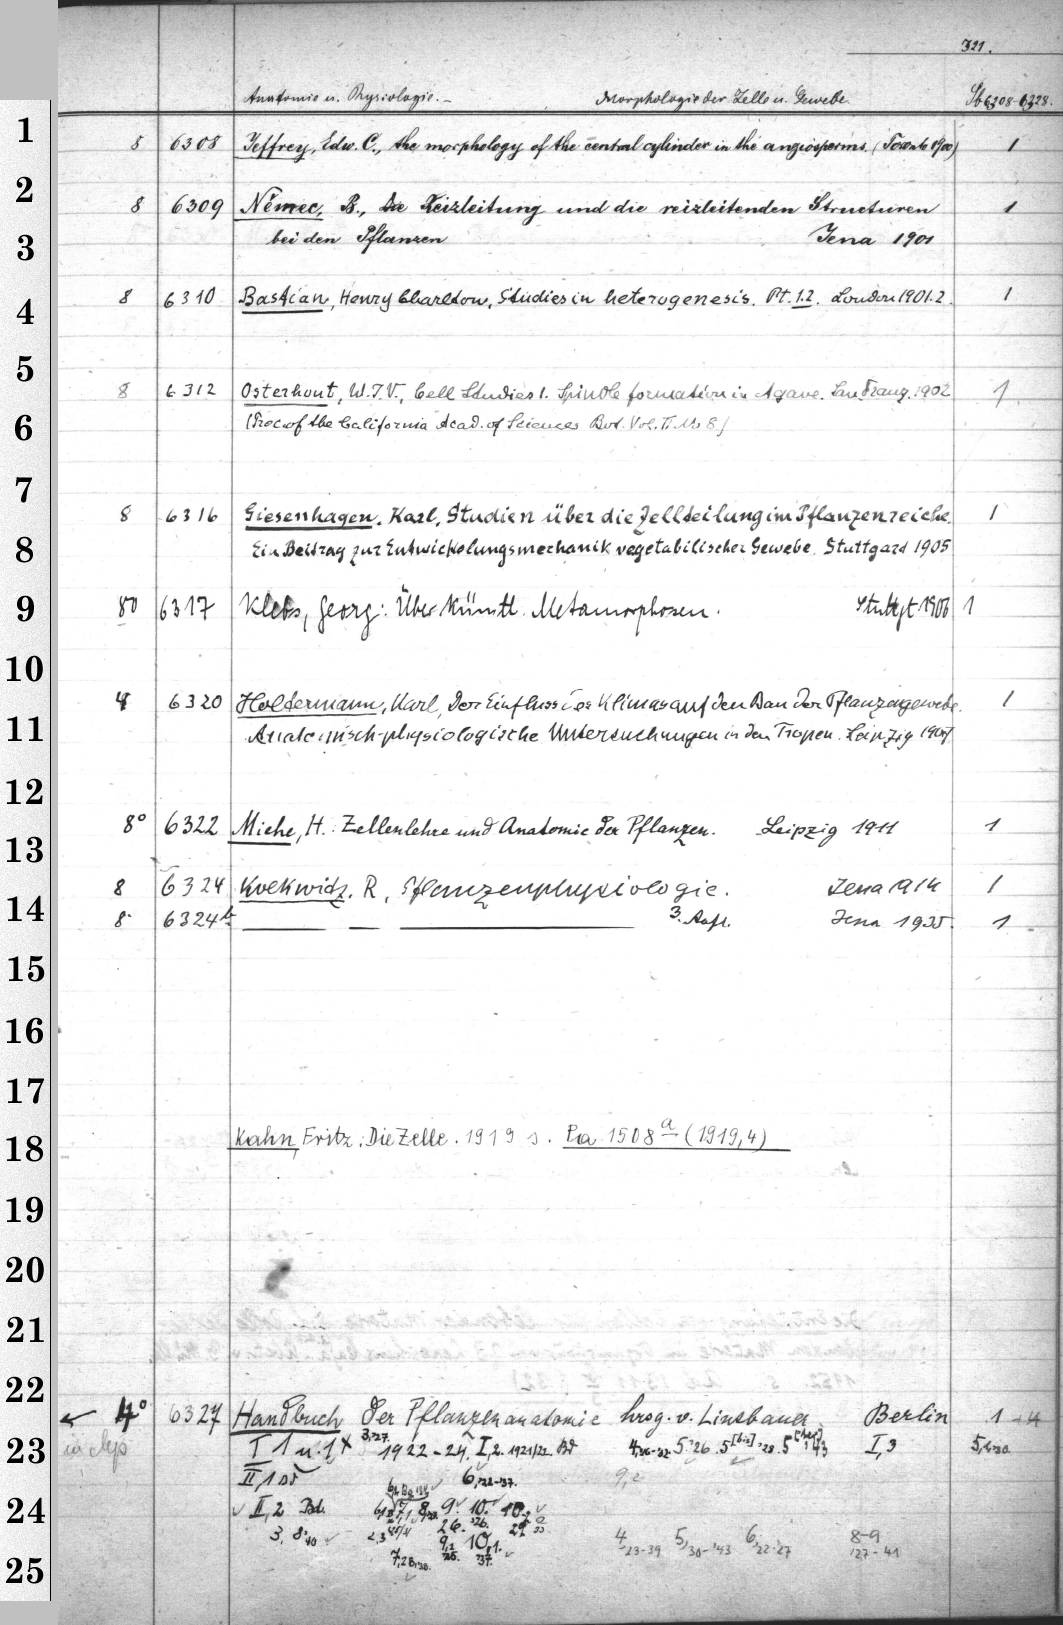 321.
Anatomie u. Physiologie. – Morphologie der Zelle u. Gewebe. Sb 6308-6328.
1
8 6308 Jeffrey, Edw. C., the morphology of the central cylinder in the angiosperms. (Toronto 1900) 1
2
8 6309 Němec, B., Die Reizleitung und die reizleitenden Structuren 1
3 bei den Pflanzen Jena 1901
8 6310 Bastian, Henry Charlton, Studies in heterogenesis. Pt. 1.2. London 1901.2. 1
4
5
8 6312 Osterhout, W.J.V., Cell Studies 1. Spindle formation in Agave. San Franz. 1902 1
6 (Proc. of the California Acad. of Sciences Bot. Vol. II. No 8)
7
8 6316 Giesenhagen, Karl, Studien über die Zellteilung im Pflanzenreiche. 1
8 Ein Beitrag zur Entwickelungsmechanik vegetabilischer Gewebe. Stuttgart 1905
9 8° 6317 Klebs, Georg: Über künstl. Metamorphosen. Stuttgt. 1906 1
10
4 6320 Holtermann, Karl, Der Einfluss des Klimas auf den Bau der Pflanzengewebe. 1
11 Anatomisch-physiologische Untersuchungen in den Tropen. Leipzig 1907
12
8° 6322 Miehe, H.: Zellenlehre und Anatomie der Pflanzen. Leipzig 1911 1
13
8 6324 Kolkwitz, R, Pflanzenphysiologie. Jena 1914 1
14 8 6324b — — — 3. Aufl. Jena 1935. 1
15
16
17
Kahn, Fritz: Die Zelle. 1919 s. Pa 1508a (1919,4)
18
19
20
21
22
4° 6327 Handbuch der Pflanzenanatomie hrsg. v. Linsbauer. Berlin 1
23 I 1 u. 1922-24. I,2. 1921/22. I,3
II,1
24 II,2 Bd.
4 23-39 5 30-43 6 22-27 8-9 27-41
25